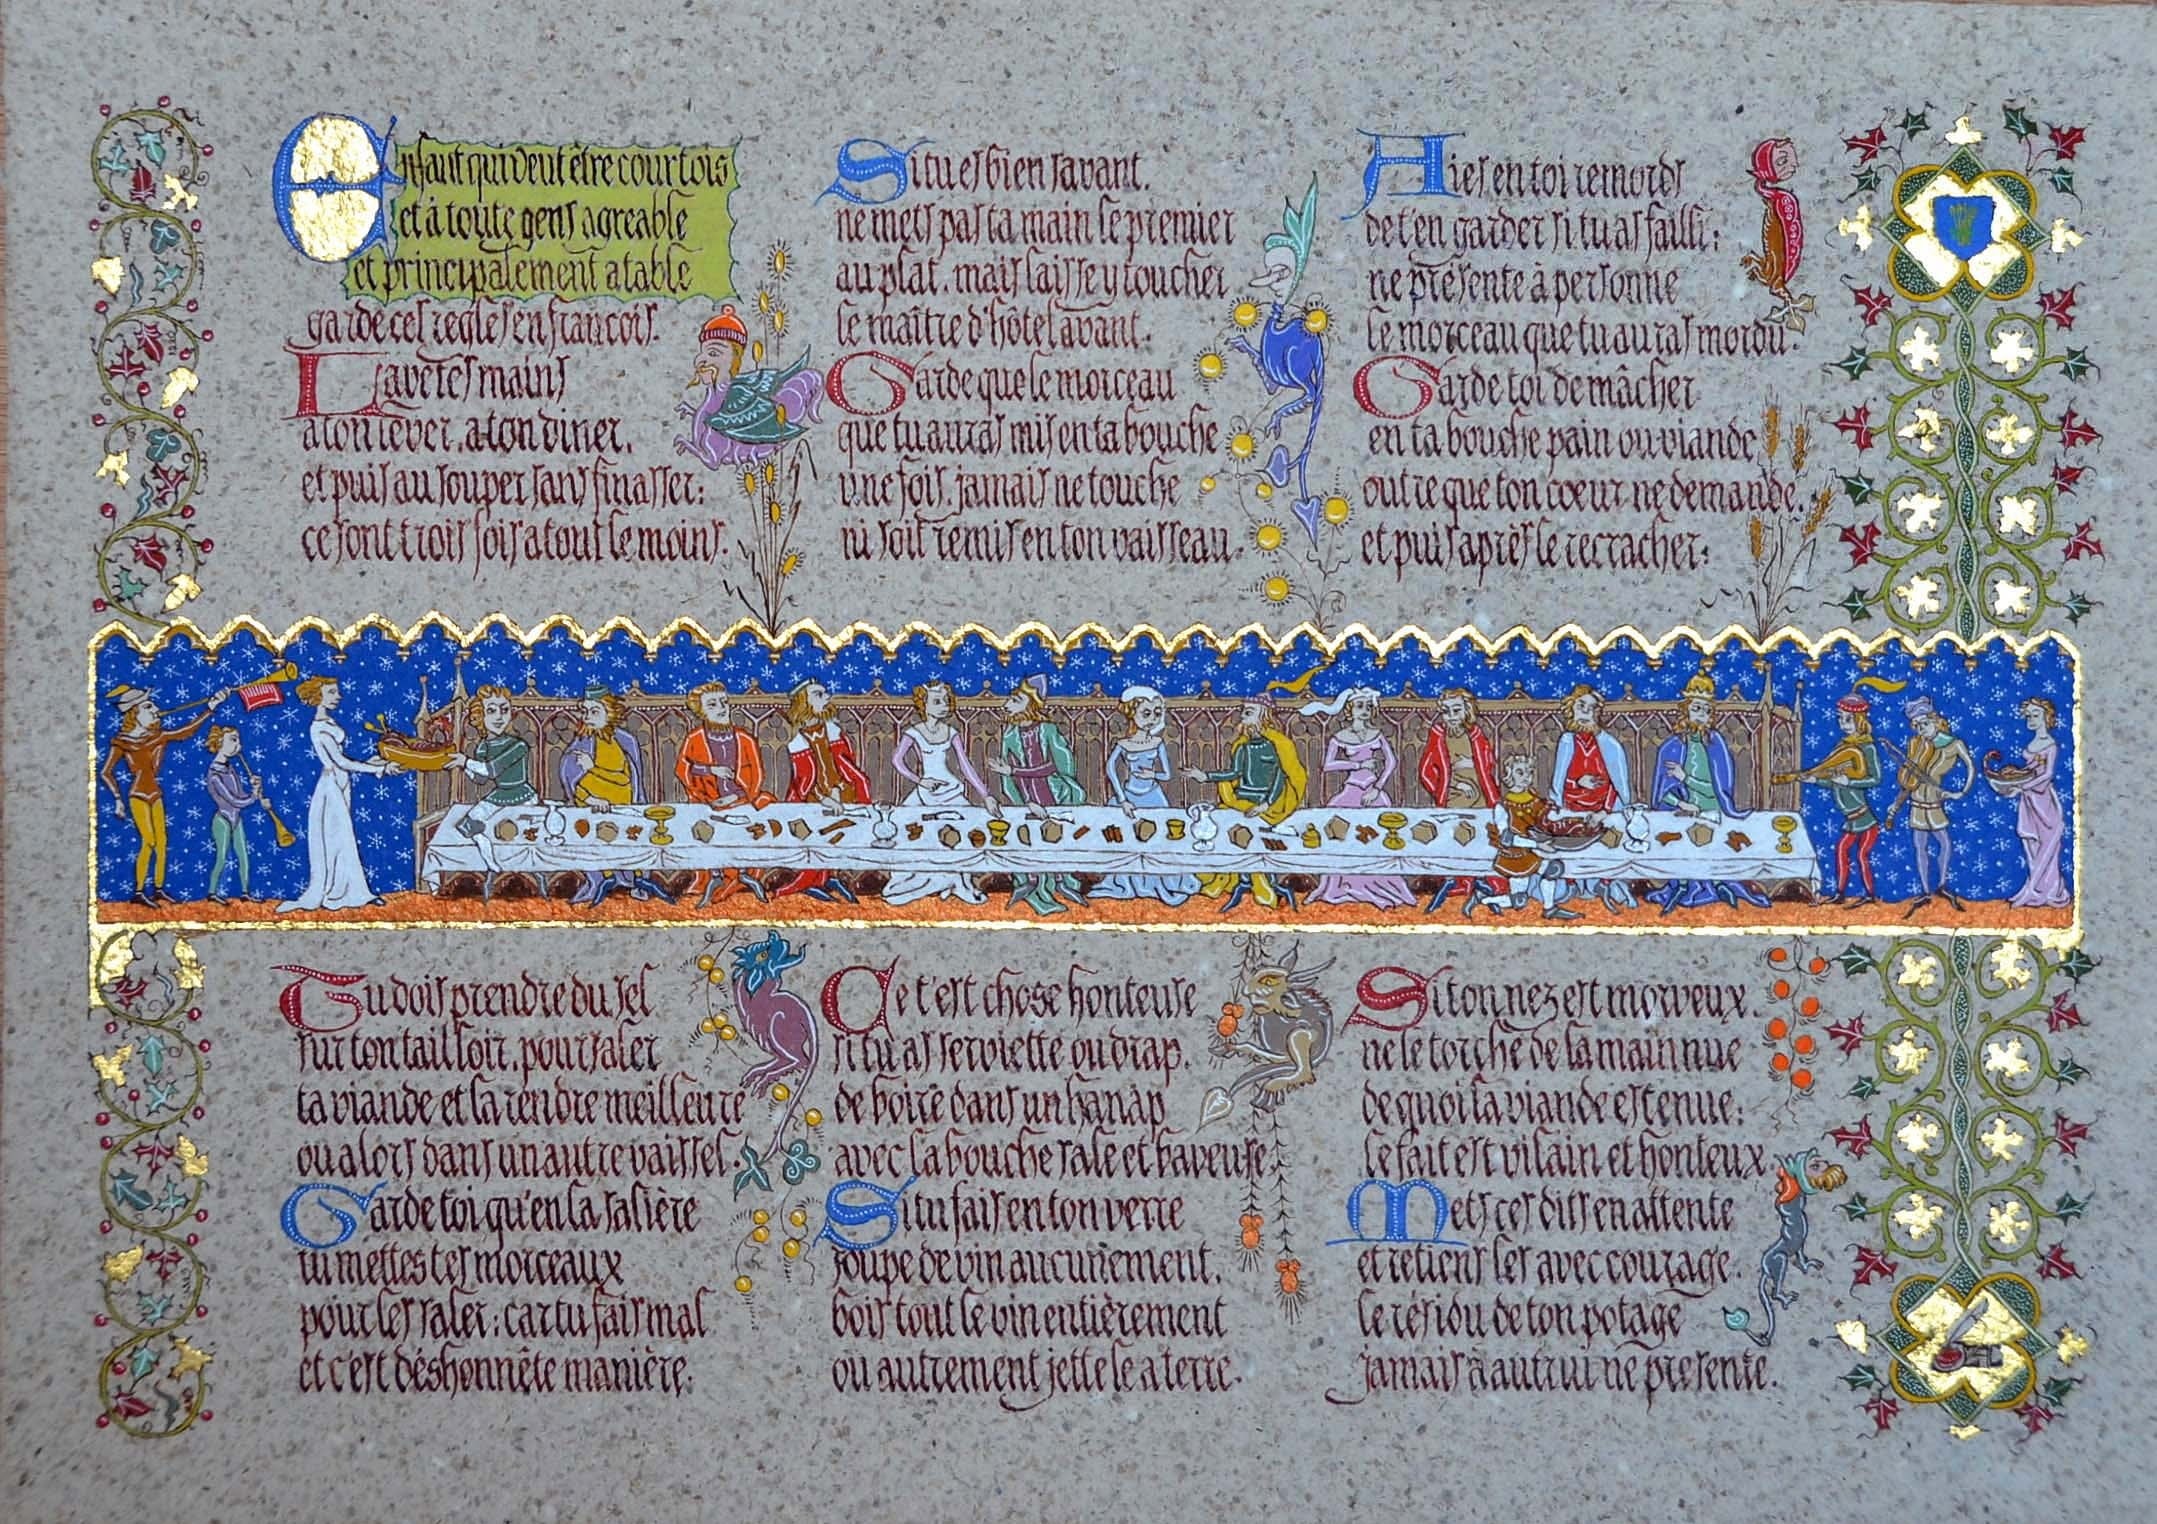 Enfant qui veut être courtois
et à toute gens agreable
et principalement a table
garde ces regles en francois.
Lave tes mains
a ton lever, a ton diner,
et puis au souper sans finasser:
ce sont trois fois a tout le moins.
Si tu es bien savant,
ne mets pas ta main le premier
au plat, mais laisse y toucher
le maître d'hôtel avant.
Garde que le morceau
que tu auras mis en ta bouche
une fois, jamais ne touche
ni soit remis en ton vaisseau.
Aies en toi remords
de t'en garder si tu as failli:
ne présente à personne
le morceau que tu auras mordu.
Garde toi de mâcher
en ta bouche pain ou viande
outre que ton coeur ne demande,
et puis après le recracher:
Tu dois prendre du sel
sur ton tailloir, pour saler
ta viande et la rendre meilleure
ou alors dans un autre vaissel.
Garde toi qu'en la salière
tu mettes tes morceaux
pour les saler: car tu fais mal
et c'est déshonnête manière.
Ce t'est chose honteuse
si tu as serviette ou drap,
de boire dans un hanap
avec la bouche sale et baveuse.
Si tu fais en ton verre
soupe de vin aucunement,
bois tout le vin entièrement
ou autrement jette le a terre.
Si ton nez est morveux,
ne le torche de la main nue
de quoi ta viande est tenue:
le fait est vilain et honteux.
Mets ces dits en attente
et retiens les avec courage.
le résidu de ton potage
jamais à autrui ne présente.